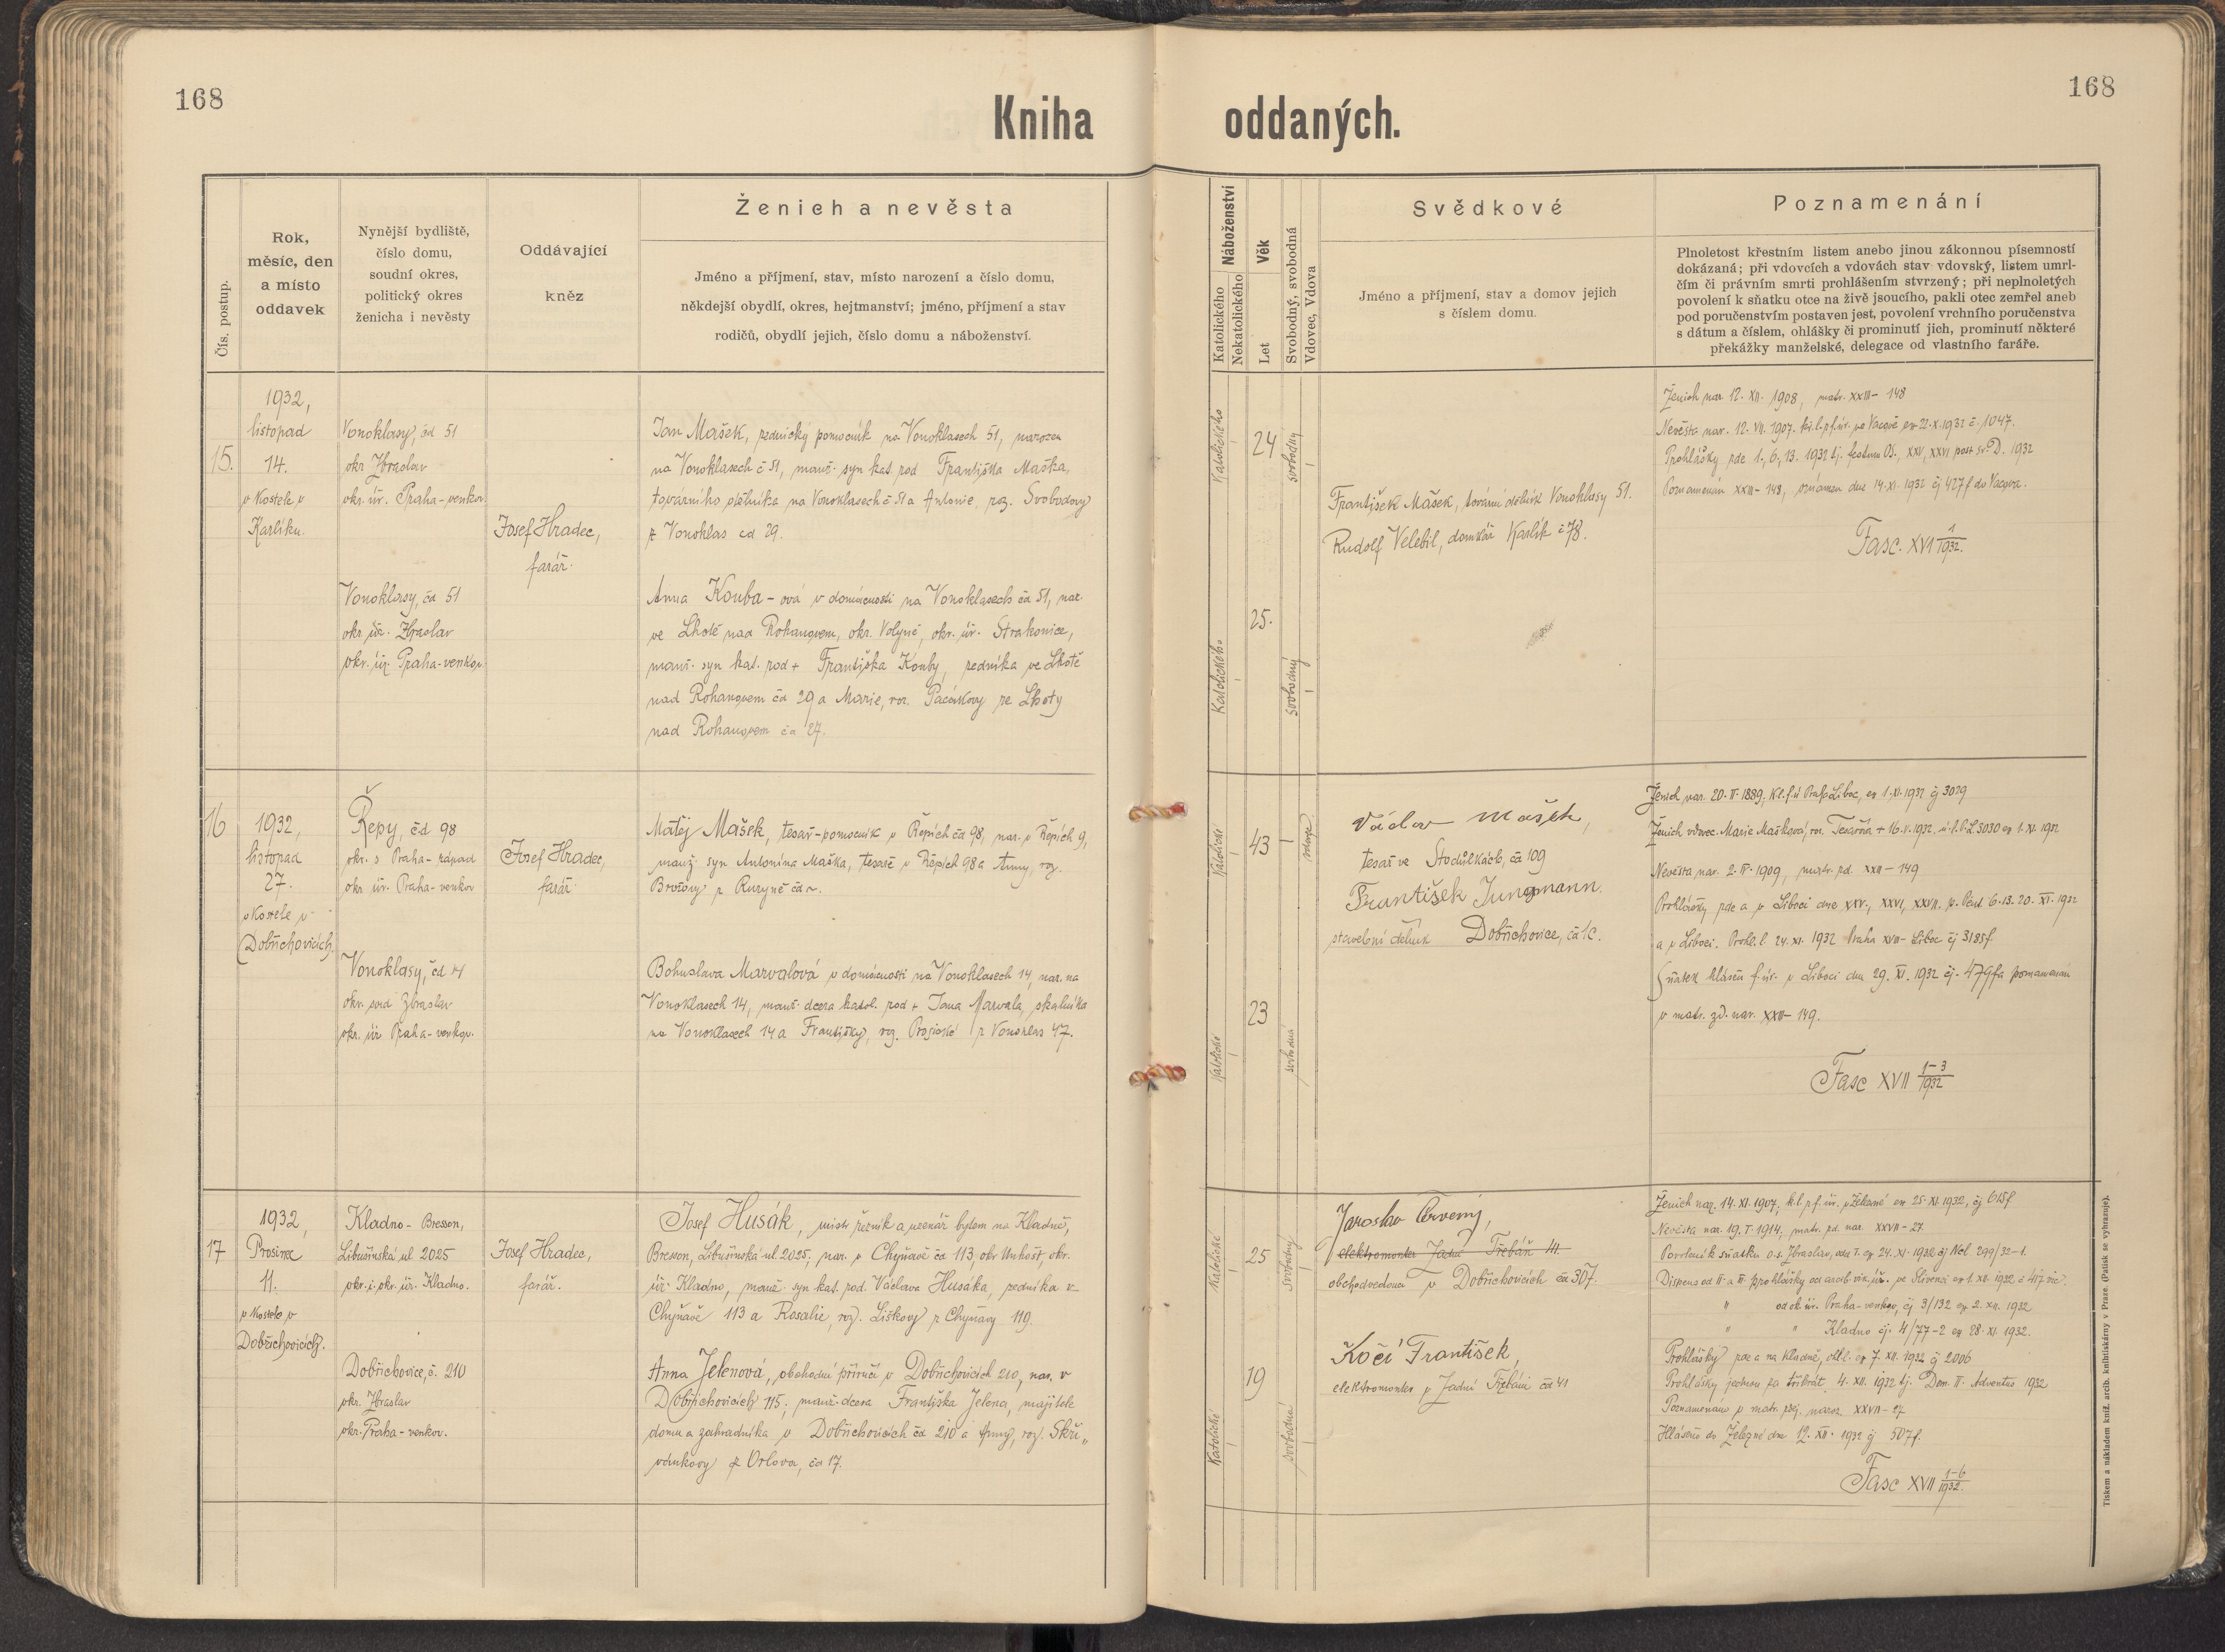 168
168
Kniha oddaných.
Čís. postup.
Rok,
měsíc, den
a místo
oddavek
Nynější bydliště,
číslo domu,
soudní okres,
politický okres
ženicha i nevěsty
Oddávající
kněz
Ženich a nevěsta
Jméno a příjmení, stav, místo narození a číslo domu,
někdejší obydlí, okres, hejtmanství; jméno, příjmení a stav
rodičů, obydlí jejich, číslo domu a náboženství.
Náboženství
Katolického
Nekatolického
Věk
Let
Svobodný, svobodná
Vdovec, Vdova
Svědkové
Jméno a příjmení, stav a domov jejich
s číslem domu.
Poznamenání
Plnoletost křestním listem anebo jinou zákonnou písemností
dokázaná; při vdovcích a vdovách stav vdovský, listem umrl-
čím či právním smrti prohlášením stvrzený; při neplnoletých
povolení k sňatku otce na živě jsoucího, pakli otec zemřel aneb
pod poručenstvím postaven jest, povolení vrchního poručenstva
s dátum a číslem, ohlášky či prominutí jich, prominutí některé
překážky manželské, delegace od vlastního faráře.
15.
1932,
listopad
14.
v Kostele v
Karlíku.
Vonoklasy, čd 51
okr Zbraslav
okr. úř. Praha-venkov
Josef Hradec,
farář.
Jan Mašek, zednický pomocník na Vonoklasech 51, narozen
na Vonoklasech č 51, manž. syn kat. rod Františka Maška,
továrního dělníka na Vonoklasech č 51 a Antonie, roz. Svobodovy
z Vonoklas čd 29.
Vonoklasy, čd 51
okr. úř. Zbraslav
okr. úř. Praha-venkov.
Anna Kouba-ová v domácnosti na Vonoklasech čd 51, nar.
ve Lhotě nad Rohanovem, okr. Volyně, okr. úř. Strakonice,
manž. syn kat. rod + Františka Kouby, zedníka ve Lhotě
nad Rohanovem čd 29 a Marie, roz. Pacákovy ze Lhoty
nad Rohanovem čd 27.
Katolického
24
svobodný
Katolického
25.
svobodný
František Mašek, tovární dělník Vonoklasy 51.
Rudolf Velebil, domkář Karlík č 78.
Ženich nar. 12. XII. 1908, matr. XXIII-148
Nevěsta nar. 12. VII. 1907. kř. l. f. úř. ve Vacově ex 22. X. 1932 č. 1047.
Prohlášky zde 1., 6., 13. 1932 tj. festum OS., XXV, XXVI post sv. D. 1932
Poznamenán XXIII-148, oznámen dne 14. XI. 1932 čj 427f do Vacova.
Fasc. XVI 1/1932.
16
1932,
listopad
27.
v Kostele v
Dobřichovicích.
Řepy, čd 98
okr. s Praha-západ
okr. úř. Praha-venkov
Josef Hradec,
farář.
Matěj Mašek, tesař-pomocník v Řepích čd 98, nar. v Řepích 9,
manž. syn Antonína Maška, tesaře v Řepích 98 a Anny, roz.
Brožovy z Ruzyně čd ~.
Vonoklasy, čd 14
okr. soud Zbraslav
okr. úř Praha-venkov.
Bohuslava Marvalová v domácnosti na Vonoklasech 14, nar. na
Vonoklasech 14, manž. dcera katol. rod + Jana Marvala, skalníka
na Vonoklasech 14 a Františky, roz. z Vonoklas 47.
Katolické
43
vdovec
Katolické
23
svobodná
Václav Mašek,
tesař ve Stodůlkách, čd 109
František Jungmann.
stavební dělník Dobřichovice, čd
Ženich nar. 20. II. 1889, kř. l. f. ú Praha Liboc, ex 1. XI. 1932 čj 3029
Ženich vdovec. Marie Mašková, roz. + 16. V. 1932. 3030 ex 1. XI. 1932
Nevěsta nar. 2. IV. 1909, matr. zd. XXII-149
Prohlášky zde a v Liboci dne XXV., XXVI, XXVII. p. 6. 13. 20. XI. 1932
a v Liboci. Prohl. l. 24. XI. 1932 Praha XVII-Liboc čj 3185f
Sňatek hlášen f. úř. v Liboci dne 29. XI. 1932 čj. 479f a poznamenán
v matr. zd. nar. XXII-149.
Fasc XVII 1-3/1932
17
1932,
Prosinec
11.
v Kostele v
Dobřichovicích.
Kladno-Bresson,
Libušínská ul 2025
okr. i okr. úř. Kladno.
Josef Hradec,
farář.
Josef Husák, mistr řezník a uzenář bytem na Kladně,
Bresson, Libušínská ul 2025, nar. v Chyňavě čd 113, okr Unhošť, okr.
úř. Kladno, manž. syn kat. rod. Václava Husáka, zedníka v
Chyňavě 113 a Rosalie, roz. Liškovy z Chyňavy 119.
Dobřichovice, č. 210
okr. Zbraslav
okr. Praha-venkov.
Anna Jelenová, obchodní příručí v Dobřichovicích 210, nar. v
Dobřichovicích 115, manž. dcera Františka Jelena, majitele
domu a zahradníka v Dobřichovicích čd 210 a Anny, roz. Skři„
vánkovy z Orlova, čd 17.
Katolické
25
svobodný
Katolické
19
svobodná
Jaroslav Červený,
elektromonter Zadní Třebáň 41.
obchodvedoucí v Dobřichovicích čd 307.
Kočí František,
elektromonter v Zadní Třebáni čd 41
Ženich nar. 14. XI. 1907, kř. l. f. úř. v Železné ex 25. XI. 1932, čj 615f
Nevěsta nar. 19. V. 1914, matr. zd. nar. XXVII-27
Povolení k sňatku o. s. Zbraslav, odd I. ex 24. XI. 1932 čj Ncl 299/32-1.
Dispens od II. a III. prohlášky od arcib vik. úř. ve Slivenci ex 1. XII. 1932 č 417 vic.
" od ok. úř. Praha-venkov, čj 3/132 ex 2. XII. 1932
" " Kladno čj. 4/77-2 ex 28. XI. 1932.
Prohlášky zde a na Kladně, ohl. l. ex 7. XII. 1932 čj 2006
Prohlášky jednou za třikrát 4. XII. 1932 tj. Dom. II. Adventus 1932
Poznamenáno v matr. zdej. naroz XXVII-27
Hlášeno do Železné dne 12. XII. 1932 čj 507f.
Fasc XVII 1-6/1932.
Tiskem a nákladem kníž. arcib. knihtiskárny v Praze. (Patisk se vyhrazuje).